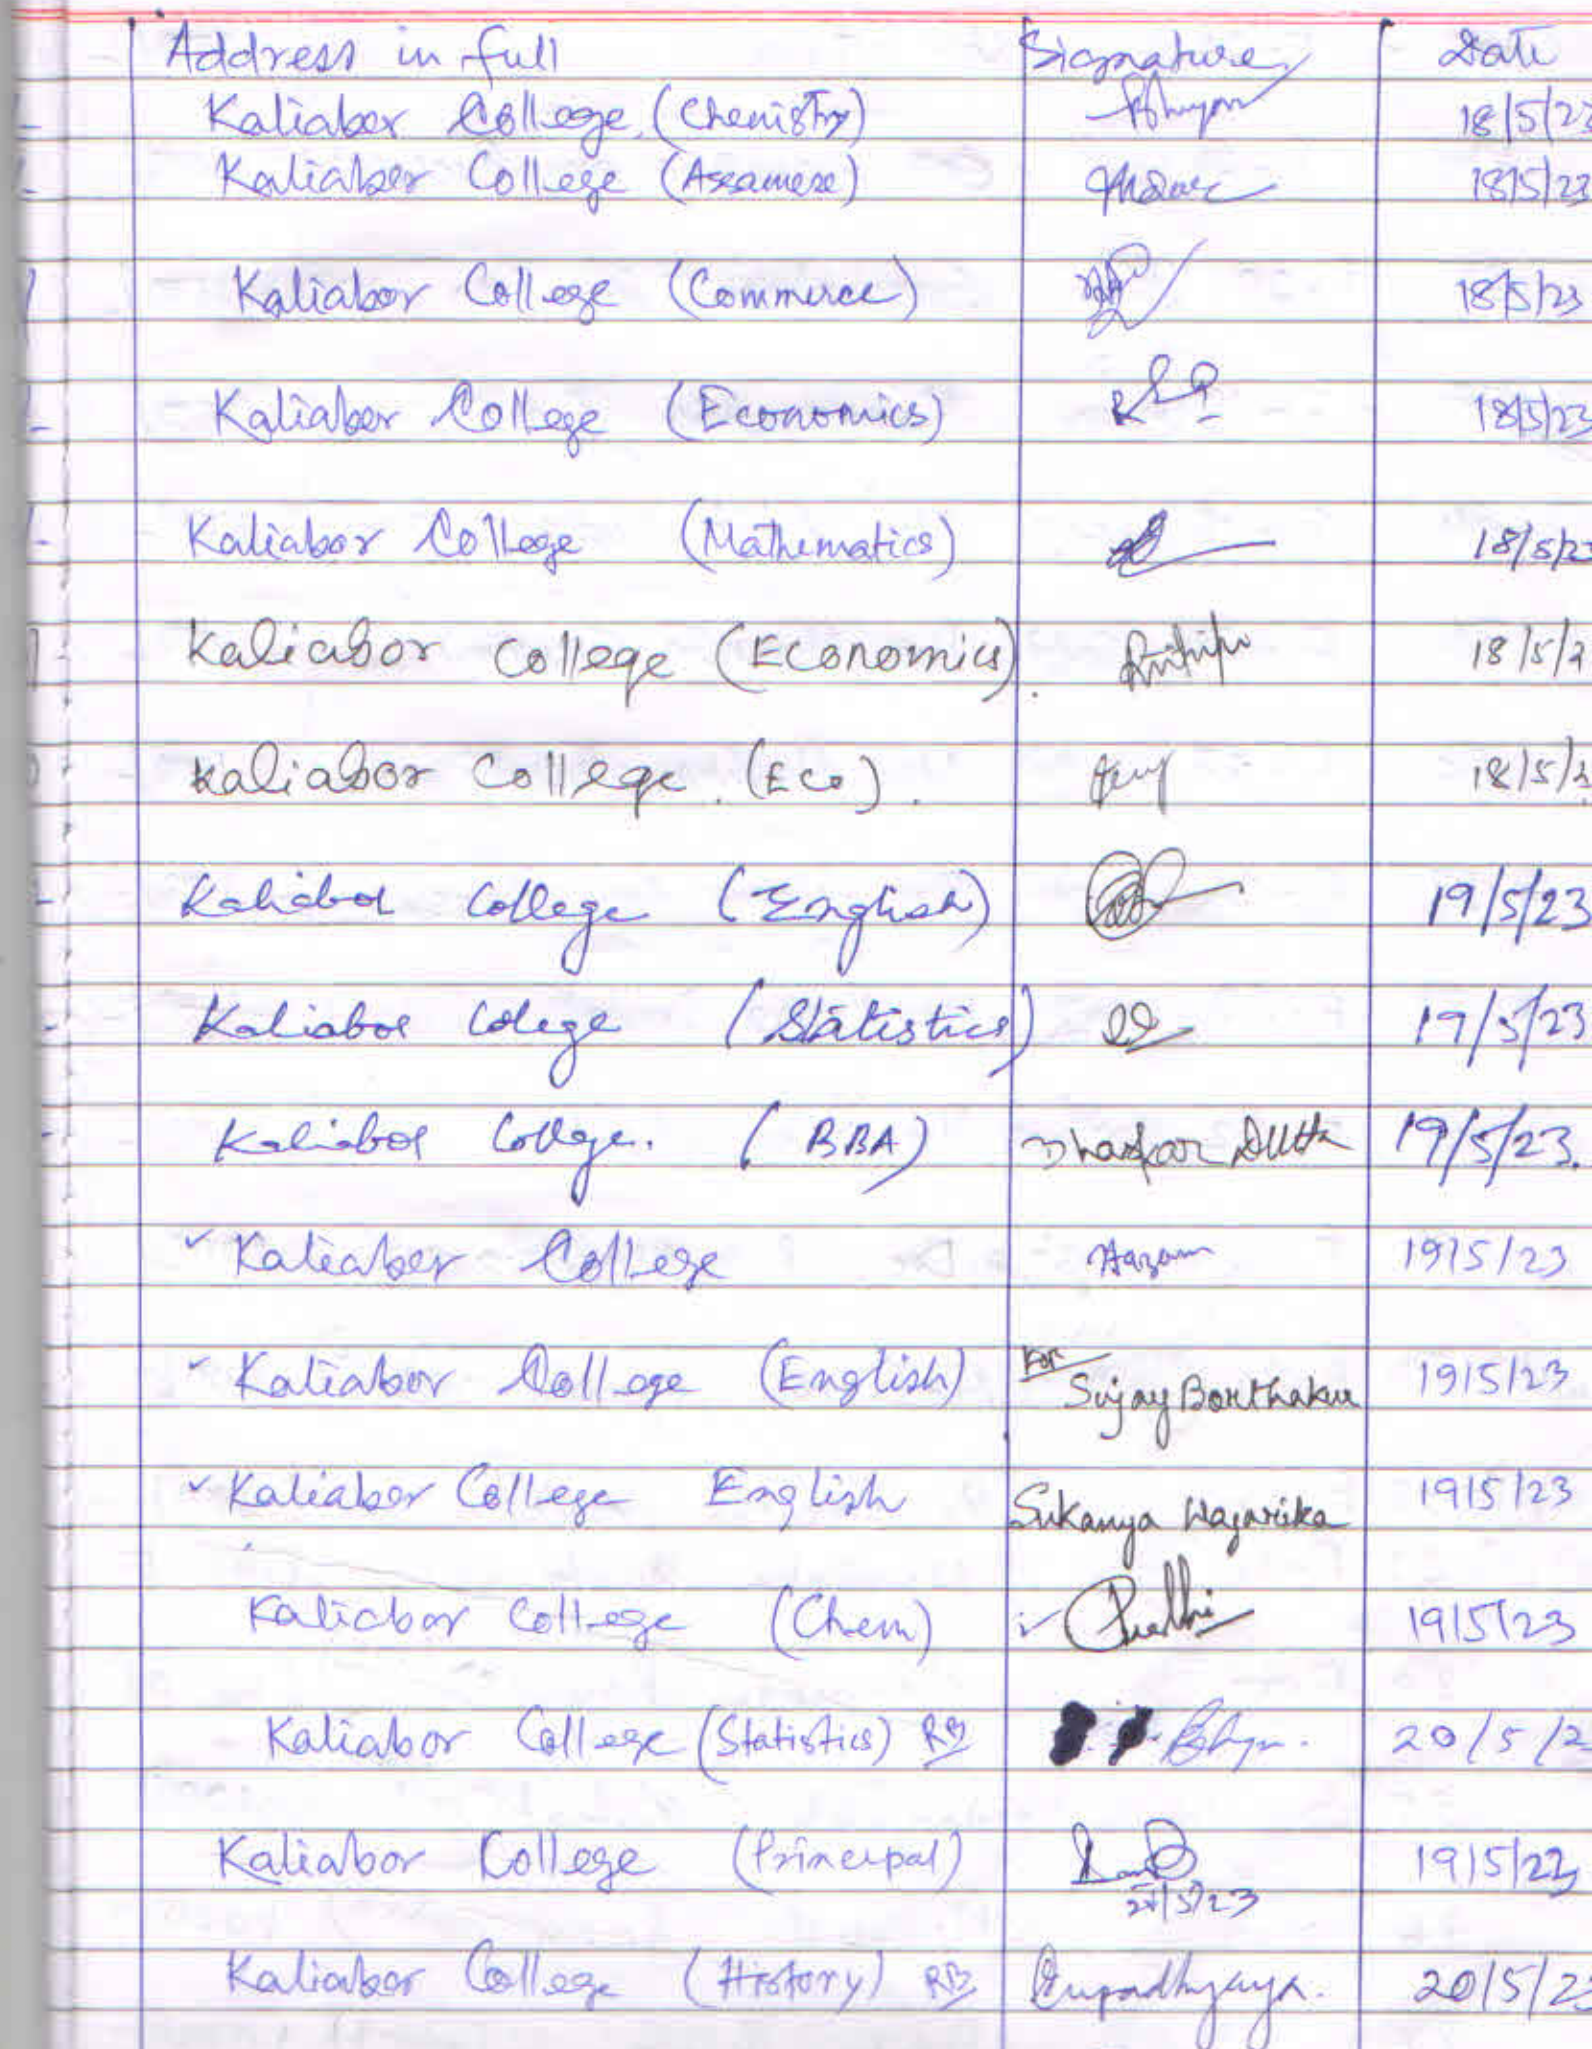 Address in full Signature Date
Kaliabor College (Chemistry) 18/5/23
Kaliabor College (Assamese) 18/5/23
Kaliabor College (Commerce) 18/5/23
Kaliabor College (Economics) 18/5/23
Kaliabor College (Mathematics) 18/5/2
Kaliabor College (Economics) 18/5/2
Kaliabor College (Eco) 18/5/2
Kaliabor College (English) 19/5/23
Kaliabor College (Statistics) 19/5/23
Kaliabor College. (BBA) Bhaskar Dutta 19/5/23.
Kaliabor College Hazam 19/5/23
Kaliabor College (English) For Sujoy Borthakur 19/5/23
Kaliabor College English Sukanya Hazarika 19/5/23
Kaliabor College (Chem) 19/5/23
Kaliabor College (Statistics) RB 20/5/2
Kaliabor College (Principal) 19/5/23
/5/23
Kaliabor College (History) RB Rupadhyaya. 20/5/23